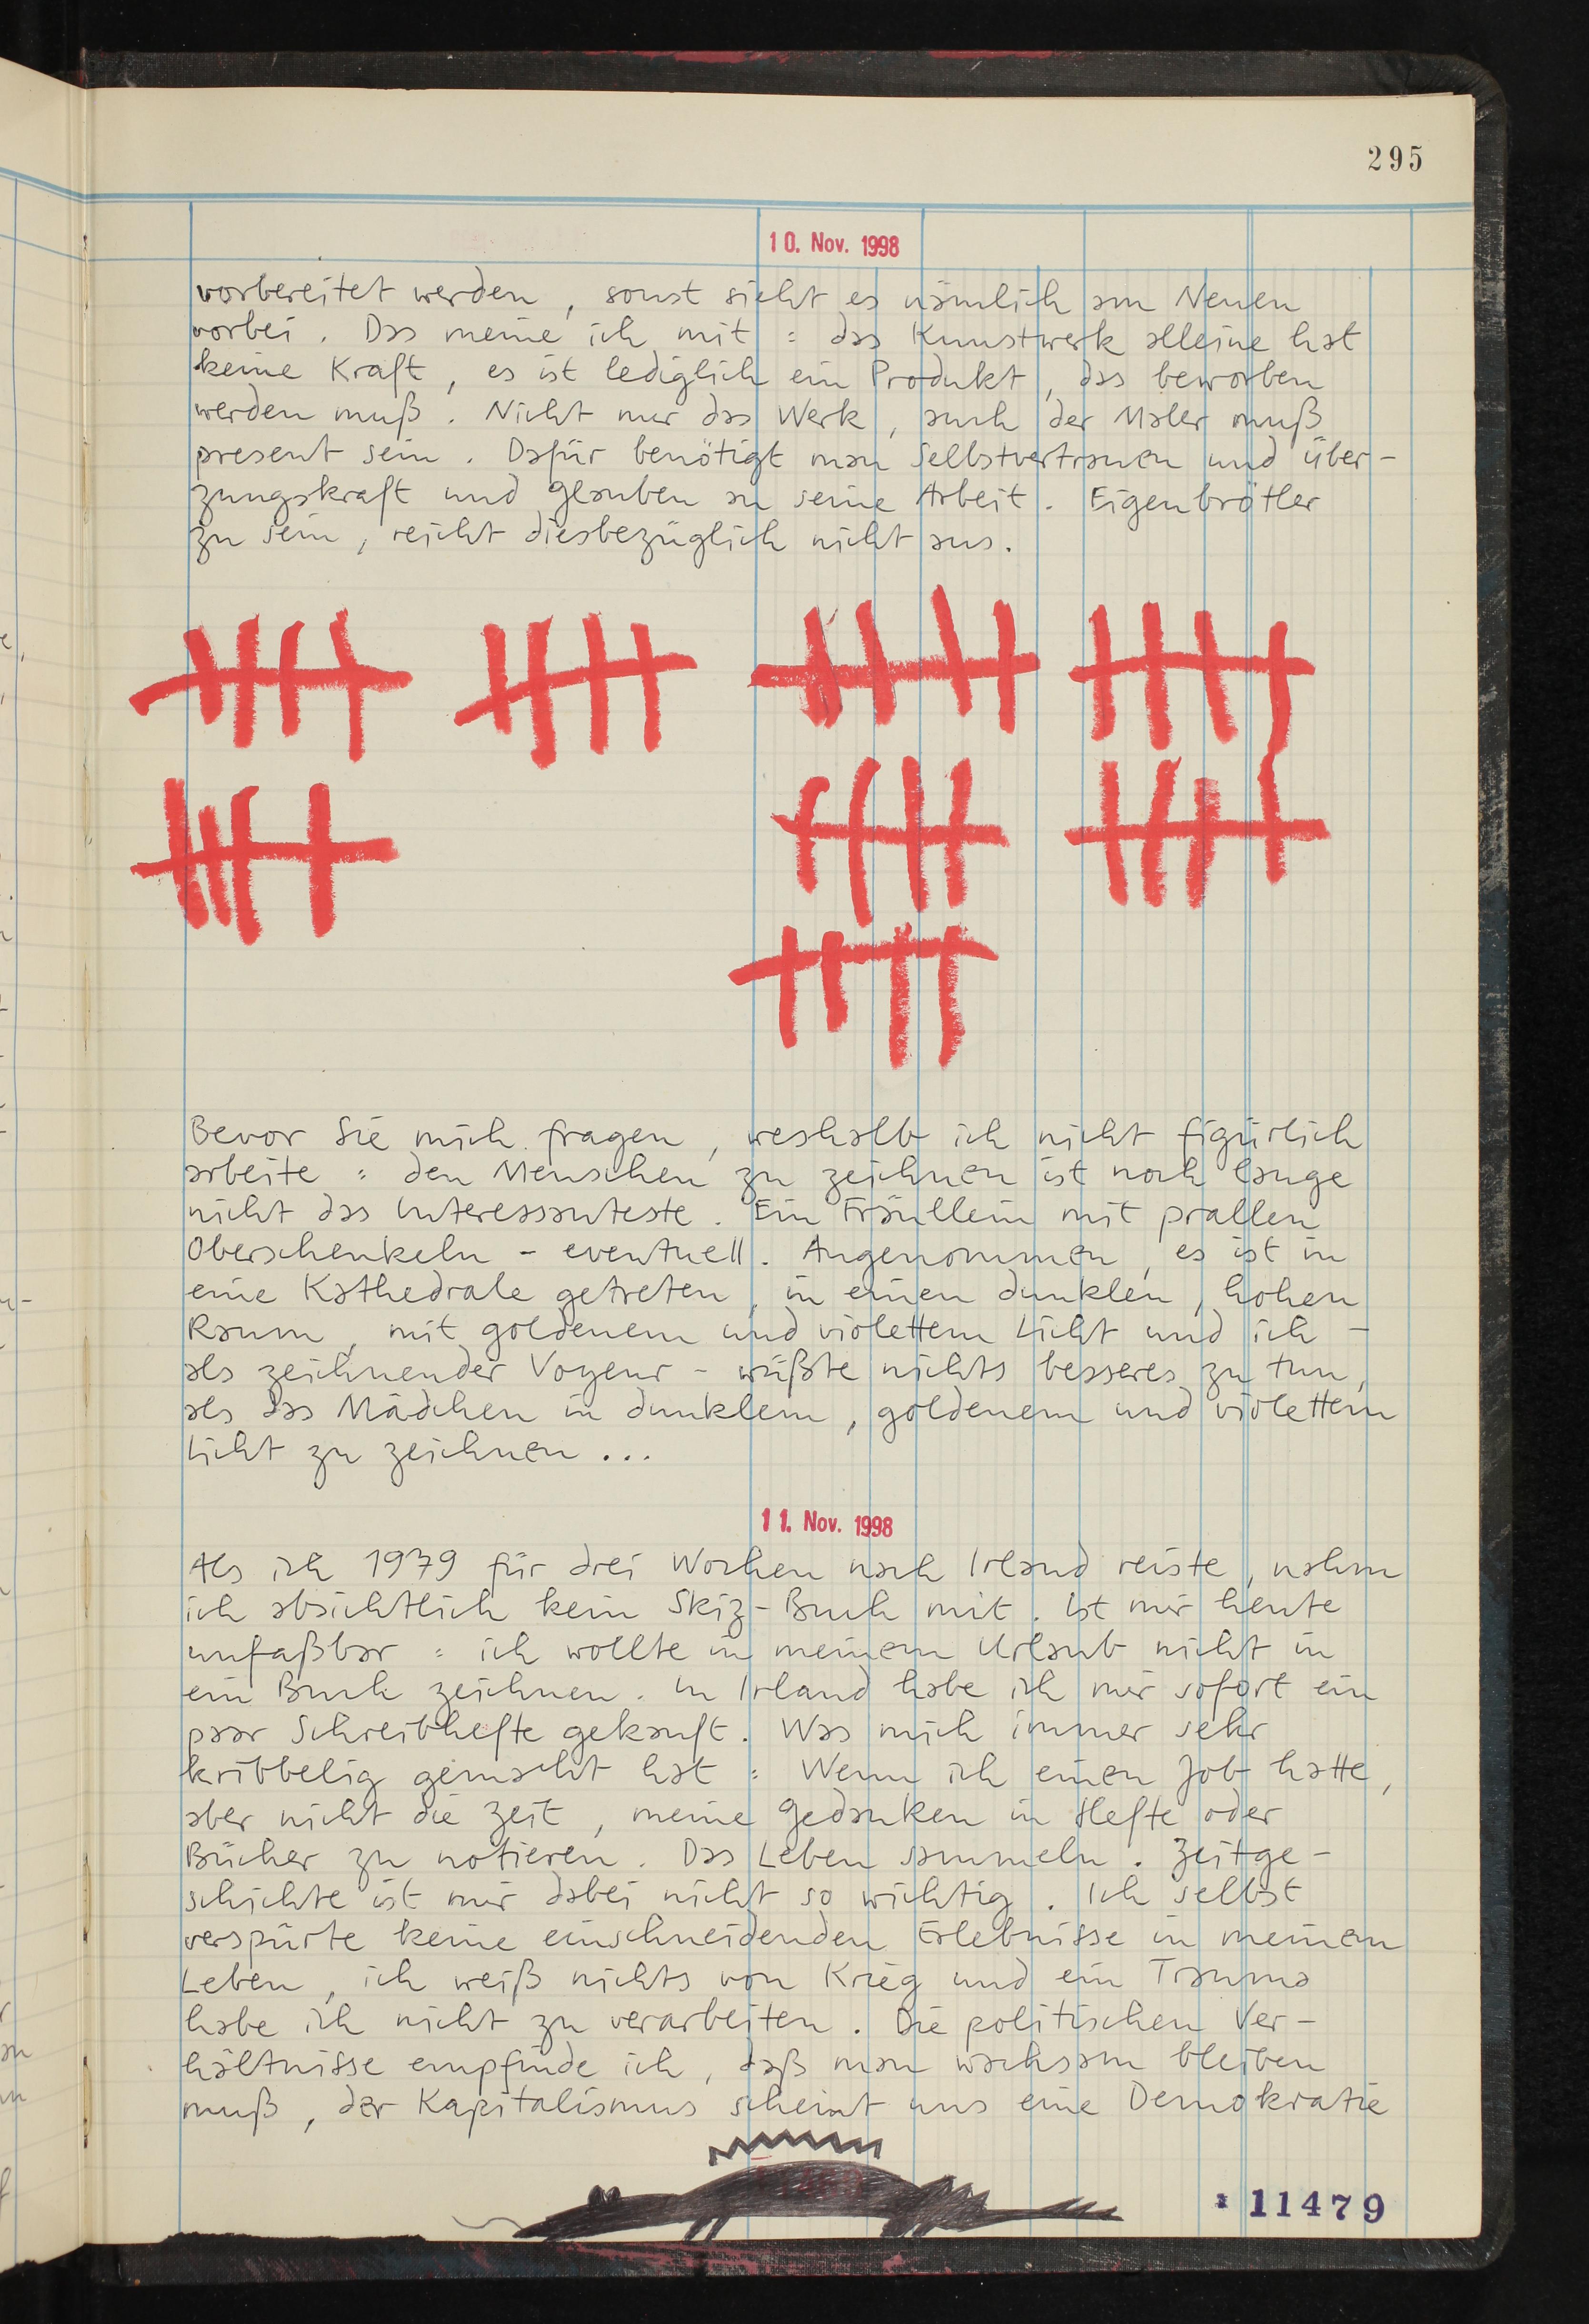 295
10. Nov. 1998
vorbereitet werden, sonst sieht es nämlich am Neuen
vorbei. Das meine ich mit : das Kunstwerk alleine hat
keine Kraft, es ist lediglich ein Produkt, das beworben
werden muß. Nicht nur das Werk, auch der Maler muß
present sein. Dafür benötigt man Selbstvertrauen und über-
zungskraft und Glauben an seine Arbeit. Eigenbrötler
zu sein, reicht diesbezüglich nicht aus.
Bevor Sie mich fragen, weshalb ich nicht figürlich
arbeite : den Menschen zu zeichnen ist noch lange
nicht das Interessanteste. Ein Fräullein mit prallen
Oberschenkeln – eventuell. Angenommen, es ist in
eine Kathedrale getreten, in einen dunklen, hohen
Raum, mit goldenem und violettem Licht und ich –
als zeichnender Voyeur – wüßte nichts besseres zu tun,
als das Mädchen in dunklem, goldenem und violettem
Licht zu zeichnen ...
11. Nov. 1998
Als ich 1979 für drei Wochen nach Irland reiste, nahm
ich absichtlich kein Skiz-Buch mit. Ist mir heute
unfaßbar : ich wollte in meinem Urlaub nicht in
ein Buch zeichnen. In Irland habe ich mir sofort ein
paar Schreibhefte gekauft. Was mich immer sehr
kribbelig gemacht hat : Wenn ich einen Job hatte,
aber nicht die Zeit, meine Gedanken in Hefte oder
Bücher zu notieren. Das Leben sammeln. Zeitge-
schichte ist mir dabei nicht so wichtig. Ich selbst
verspürte keine einschneidenden Erlebnisse in meinem
Leben, ich weiß nichts von Krieg und ein Trauma
habe ich nicht zu verarbeiten. Die politischen Ver-
hältnisse empfinde ich, daß man wachsam bleiben
muß, der Kapitalismus scheint uns eine Demokratie
11479